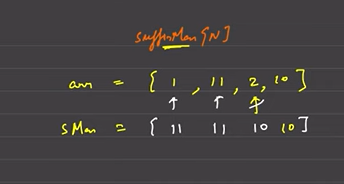 suffixMax[N]
arr = { 1 , 11 , 2, 10 }
sMax = { 11 11 10 10 ]